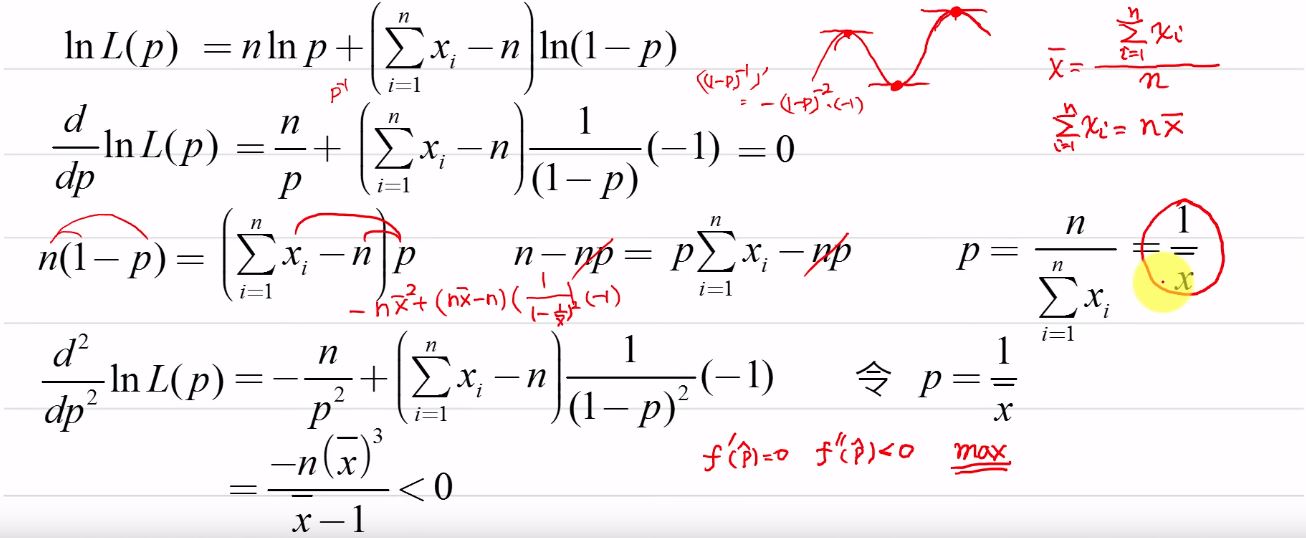 ln L(p) = n ln p + (∑_{i=1}^{n} x_i − n) ln(1 − p)
p⁻¹
((1−p)⁻¹)'
= −(1−p)⁻²·(−1)
x̄ = ∑_{i=1}^{n} x_i / n
∑_{i=1}^{n} x_i = n x̄
d/dp ln L(p) = n/p + (∑_{i=1}^{n} x_i − n) 1/(1 − p) (−1) = 0
n(1 − p) = (∑_{i=1}^{n} x_i − n) p n − np = p ∑_{i=1}^{n} x_i − np p = n / ∑_{i=1}^{n} x_i = 1/x̄
− n x̄² + (n x̄ − n) (1/(1 − 1/x̄)²) (−1)
d²/dp² ln L(p) = − n/p² + (∑_{i=1}^{n} x_i − n) 1/(1 − p)² (−1) 令 p = 1/x̄
= −n(x̄)³ / (x̄ − 1) < 0
f'(p̂)=0 f''(p̂)<0 max